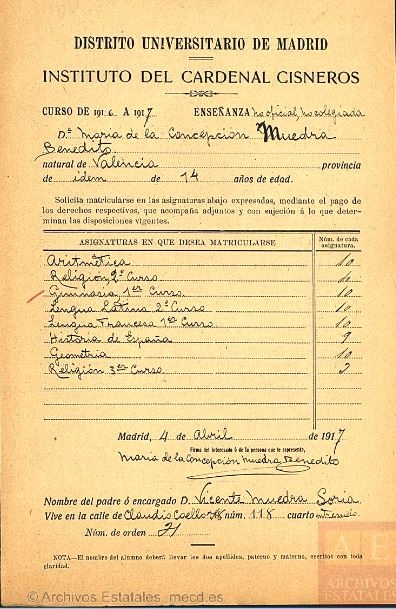 DISTRITO UNIVERSITARIO DE MADRID
INSTITUTO DEL CARDENAL CISNEROS
CURSO DE 1916 A 1917 ENSEÑANZA no oficial, no colegiada
D.ª Maria de la Concepción Muedra
Benedito
natural de Valencia provincia
de idem de 14 años de edad.
Solicita matricularse en las asignaturas abajo expresadas, mediante el pago de
los derechos respectivos, que acompaña adjuntos y con sujeción á lo que deter-
minan las disposiciones vigentes.
ASIGNATURAS EN QUE DESEA MATRICULARSE Núm. de cada asignatura.
Aritmética 10
Religión, 2º Curso
Gimnasia, 1er Curso 10
Lengua Latina 2º Curso 10
Lengua Francesa 1er Curso 10
Historia de España 9
Geometria 10
Religión 3er Curso
Madrid, 4 de Abril de 1917
Firma del interesado ó de la persona que le represente,
Maria de la Concepción Muedra Benedito
Nombre del padre ó encargado D. Vicente Muedra Soria
Vive en la calle de Claudio Coello núm. 118 cuarto
Núm. de orden 21
NOTA—El nombre del alumno deberá llevar los dos apellidos, paterno y materno, escritos con toda
claridad.
AE
ARCHIVOS
ESTATALES
© Archivos Estatales, mecd.es